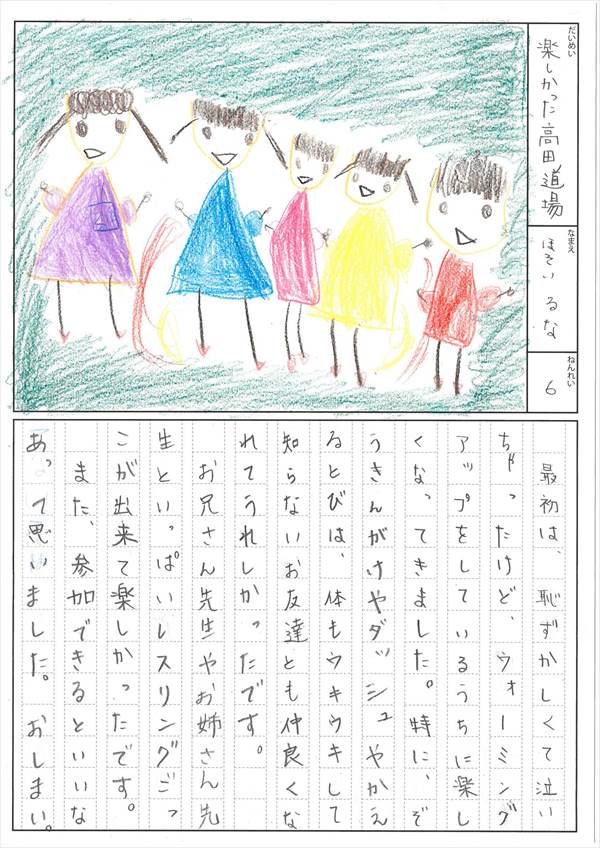 だいめい
楽しかった高田道場
なまえ
ほそい るな
ねんれい
6
最初は、恥ずかしくて泣い
ちゃったけど、ウォーミング
アップをしているうちに楽し
くなってきました。特に、ぞ
うきんがけやダッシュやかえ
るとびは、体もウキウキして
知らないお友達とも仲良くな
れてうれしかったです。
お兄さん先生やお姉さん先
生といっぱいレスリングごっ
こが出来て楽しかったです。
また、参加できるといいな
あって思いました。おしまい。